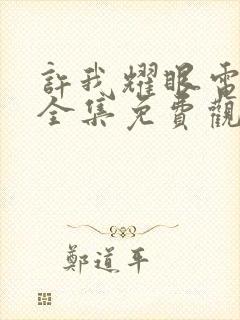 許我耀眼電
全集免費觀
鄭道平